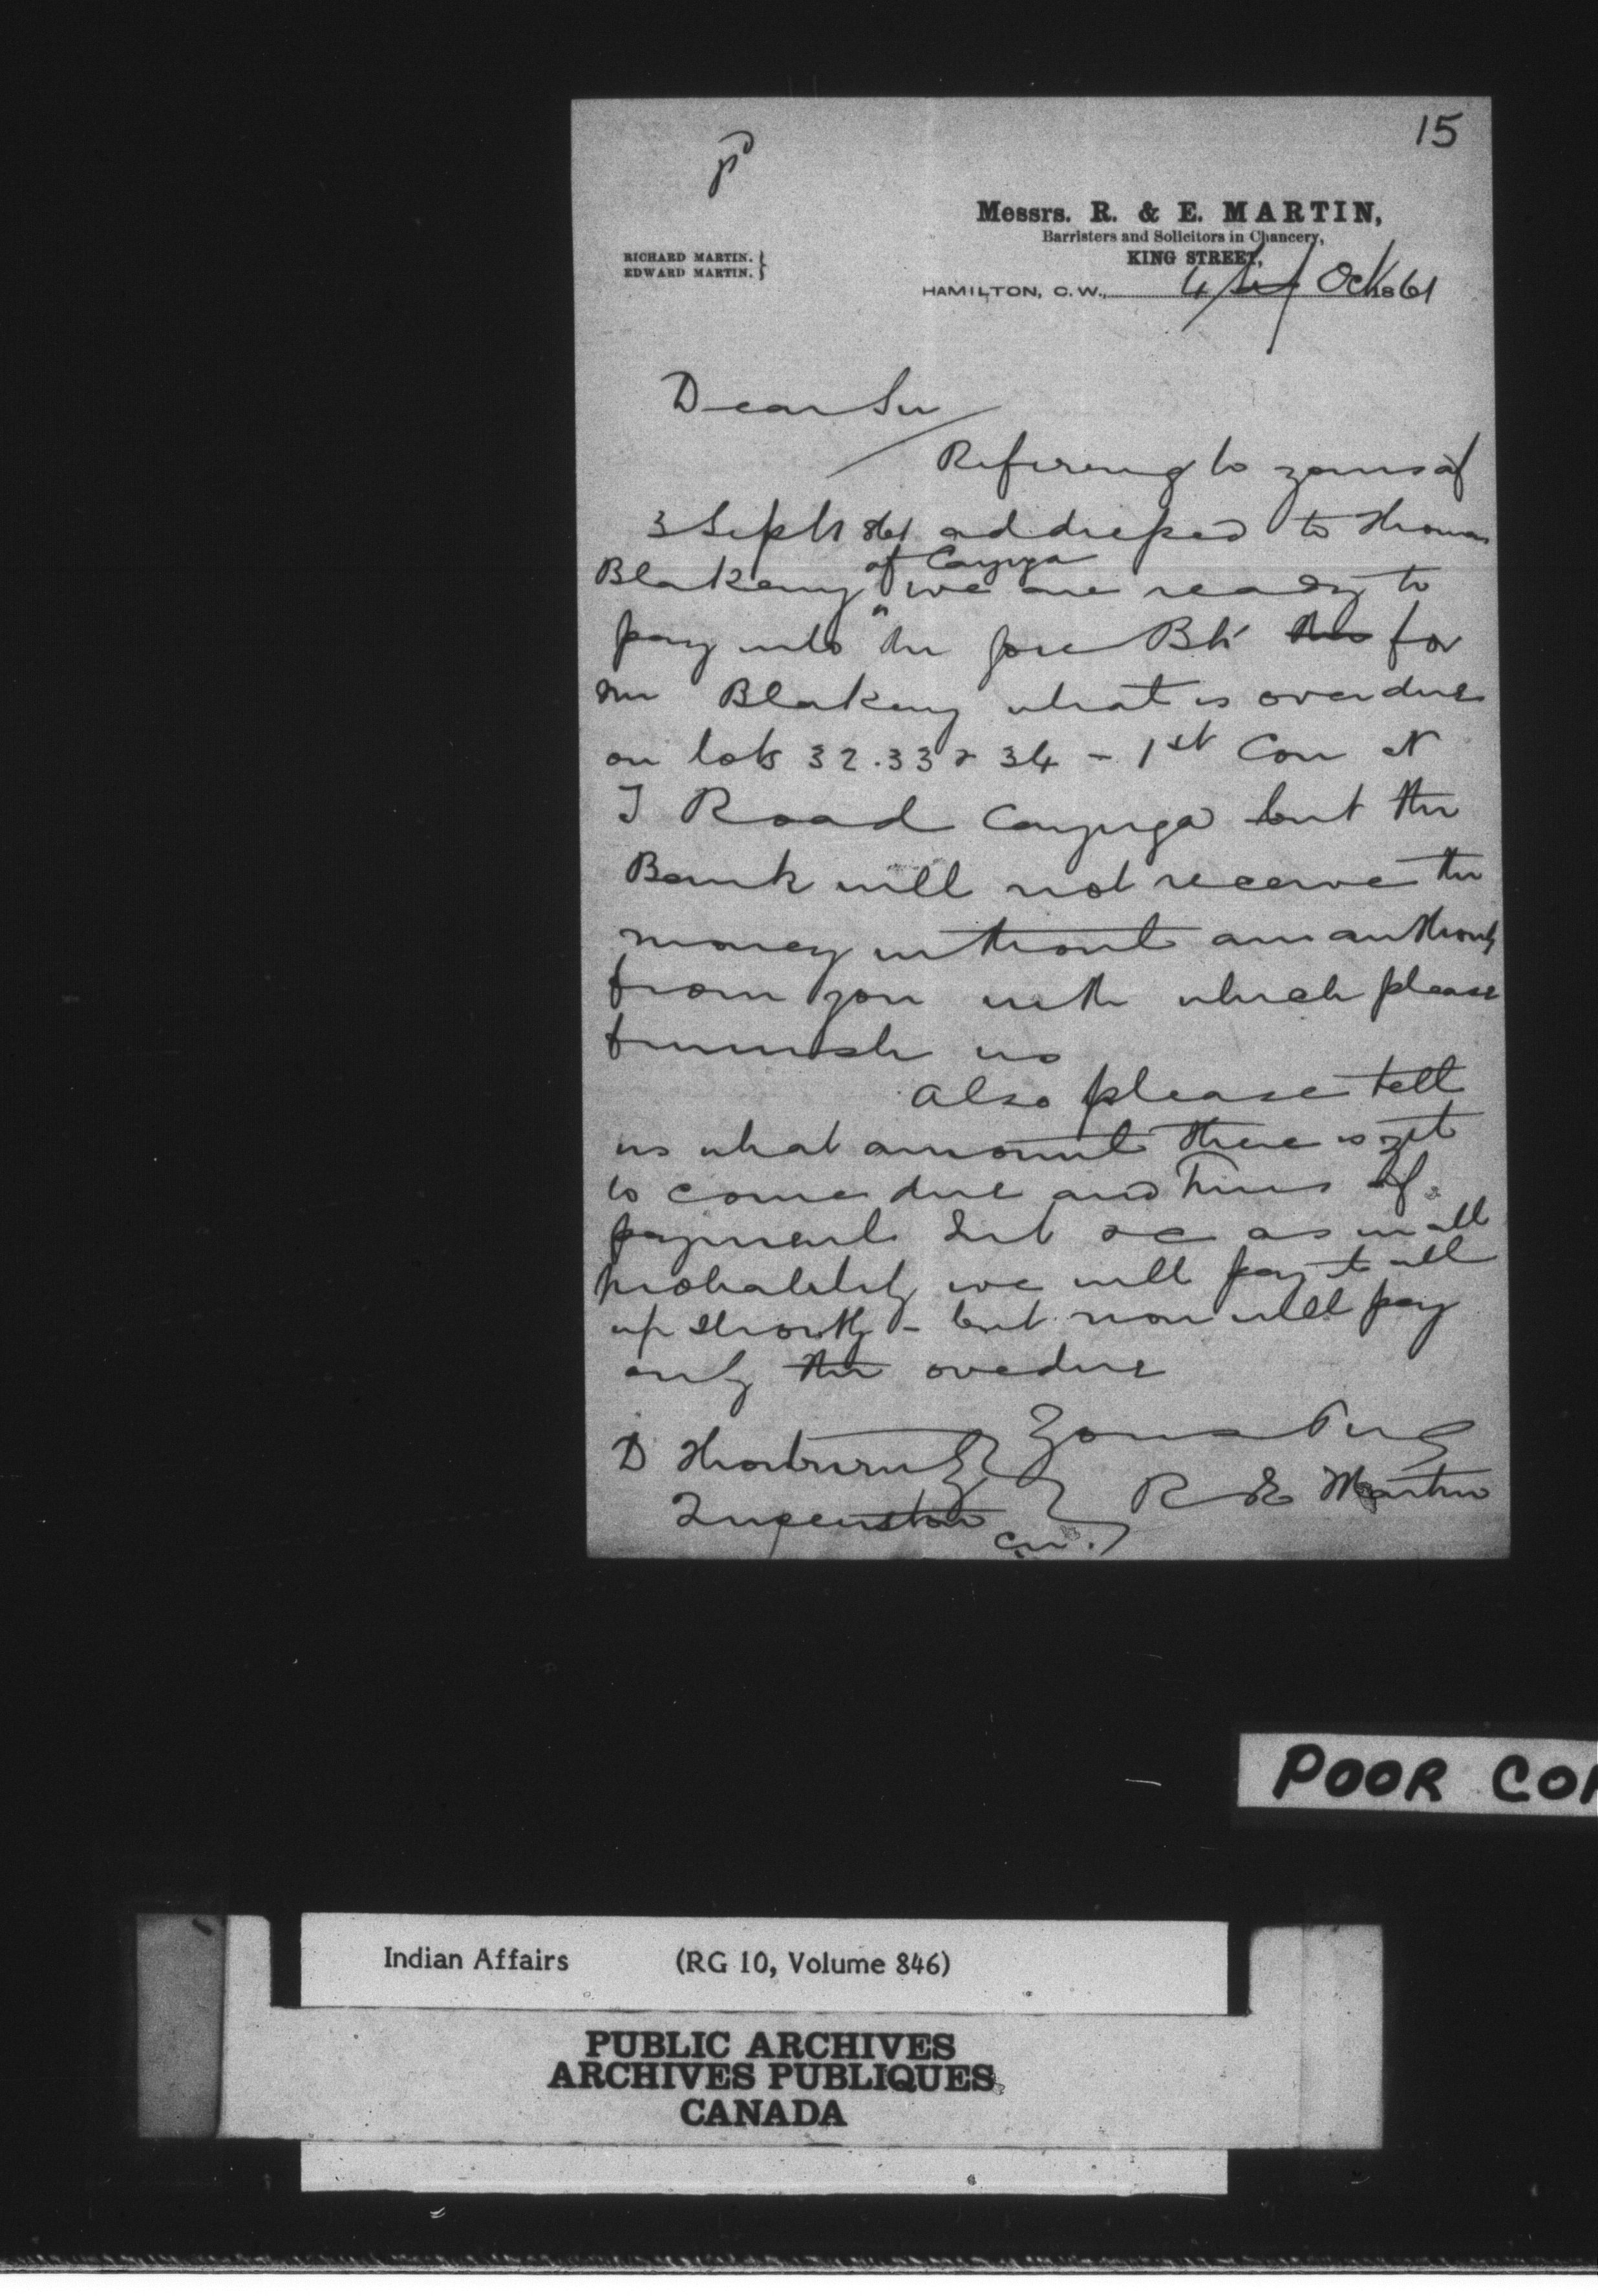 15
Messrs. R. & E. MARTIN,
Barristers and Solicitors in Chancery,
KING STREET,
RICHARD MARTIN.
EDWARD MARTIN.
HAMILTON, C. W., 4 Sep Oct 1861
Dear Sir
Refering to yours of
3 Sept 1861 addressed to Thomas
Blakeny of Cayuga we are ready to
pay into the Gore Bk this for
Mr Blakeny what is overdue
on lots 32.33 & 34 - 1st Con N
T Road Cayuga but the
Bank will not receive the
money without an authority
from you with which please
furnish us
Also please tell
us what amount there is yet
to come due and times of
payment Int &c as in all
probability we will pay it all
up shortly - but now will pay
only the overdue
Yours Truly
D Thorburn Esq
R & E Martin
Queenston
C.W.
POOR COP
Indian Affairs (RG 10, Volume 846)
PUBLIC ARCHIVES
ARCHIVES PUBLIQUES
CANADA